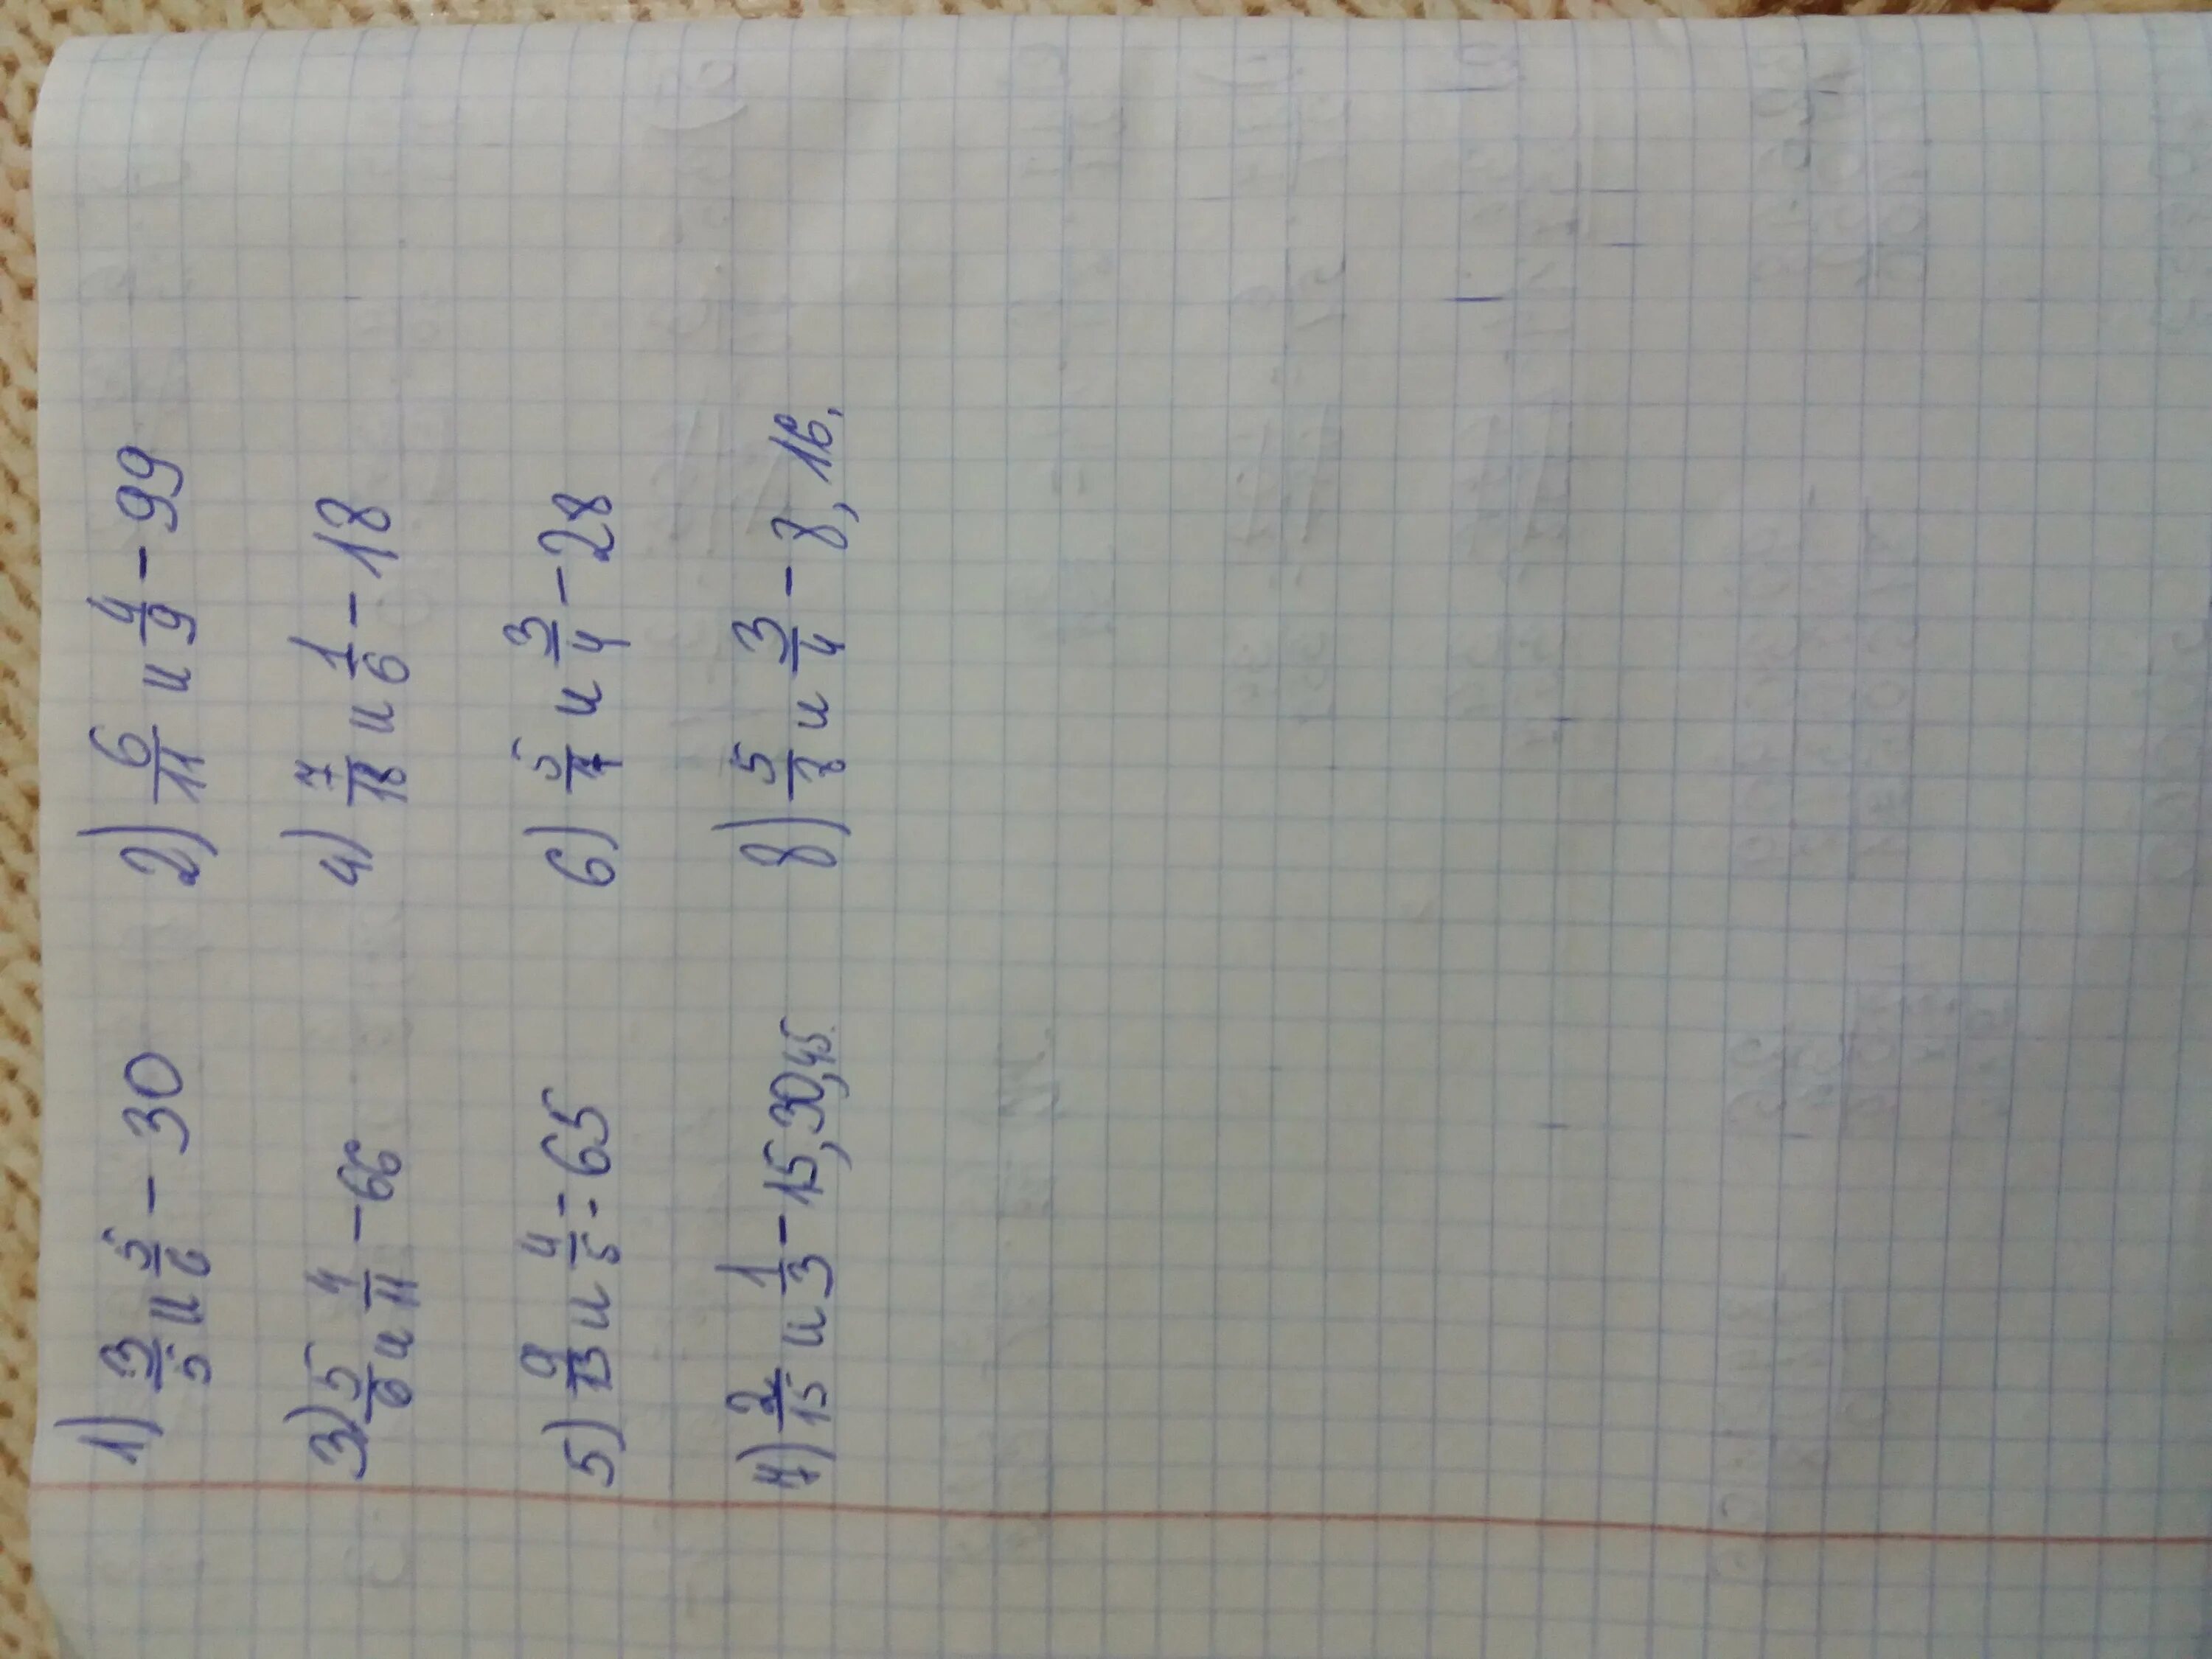 1) 3/5 и 5/6 – 30 2) 6/11 и 4/9 – 99
3) 5/6 и 4/11 – 66 4) 7/18 и 1/6 – 18
5) 9/13 и 4/5 = 65 6) 5/14 и 3/4 – 28
7) 2/15 и 1/3 – 15, 30, 45 8) 5/8 и 3/4 – 8, 16,